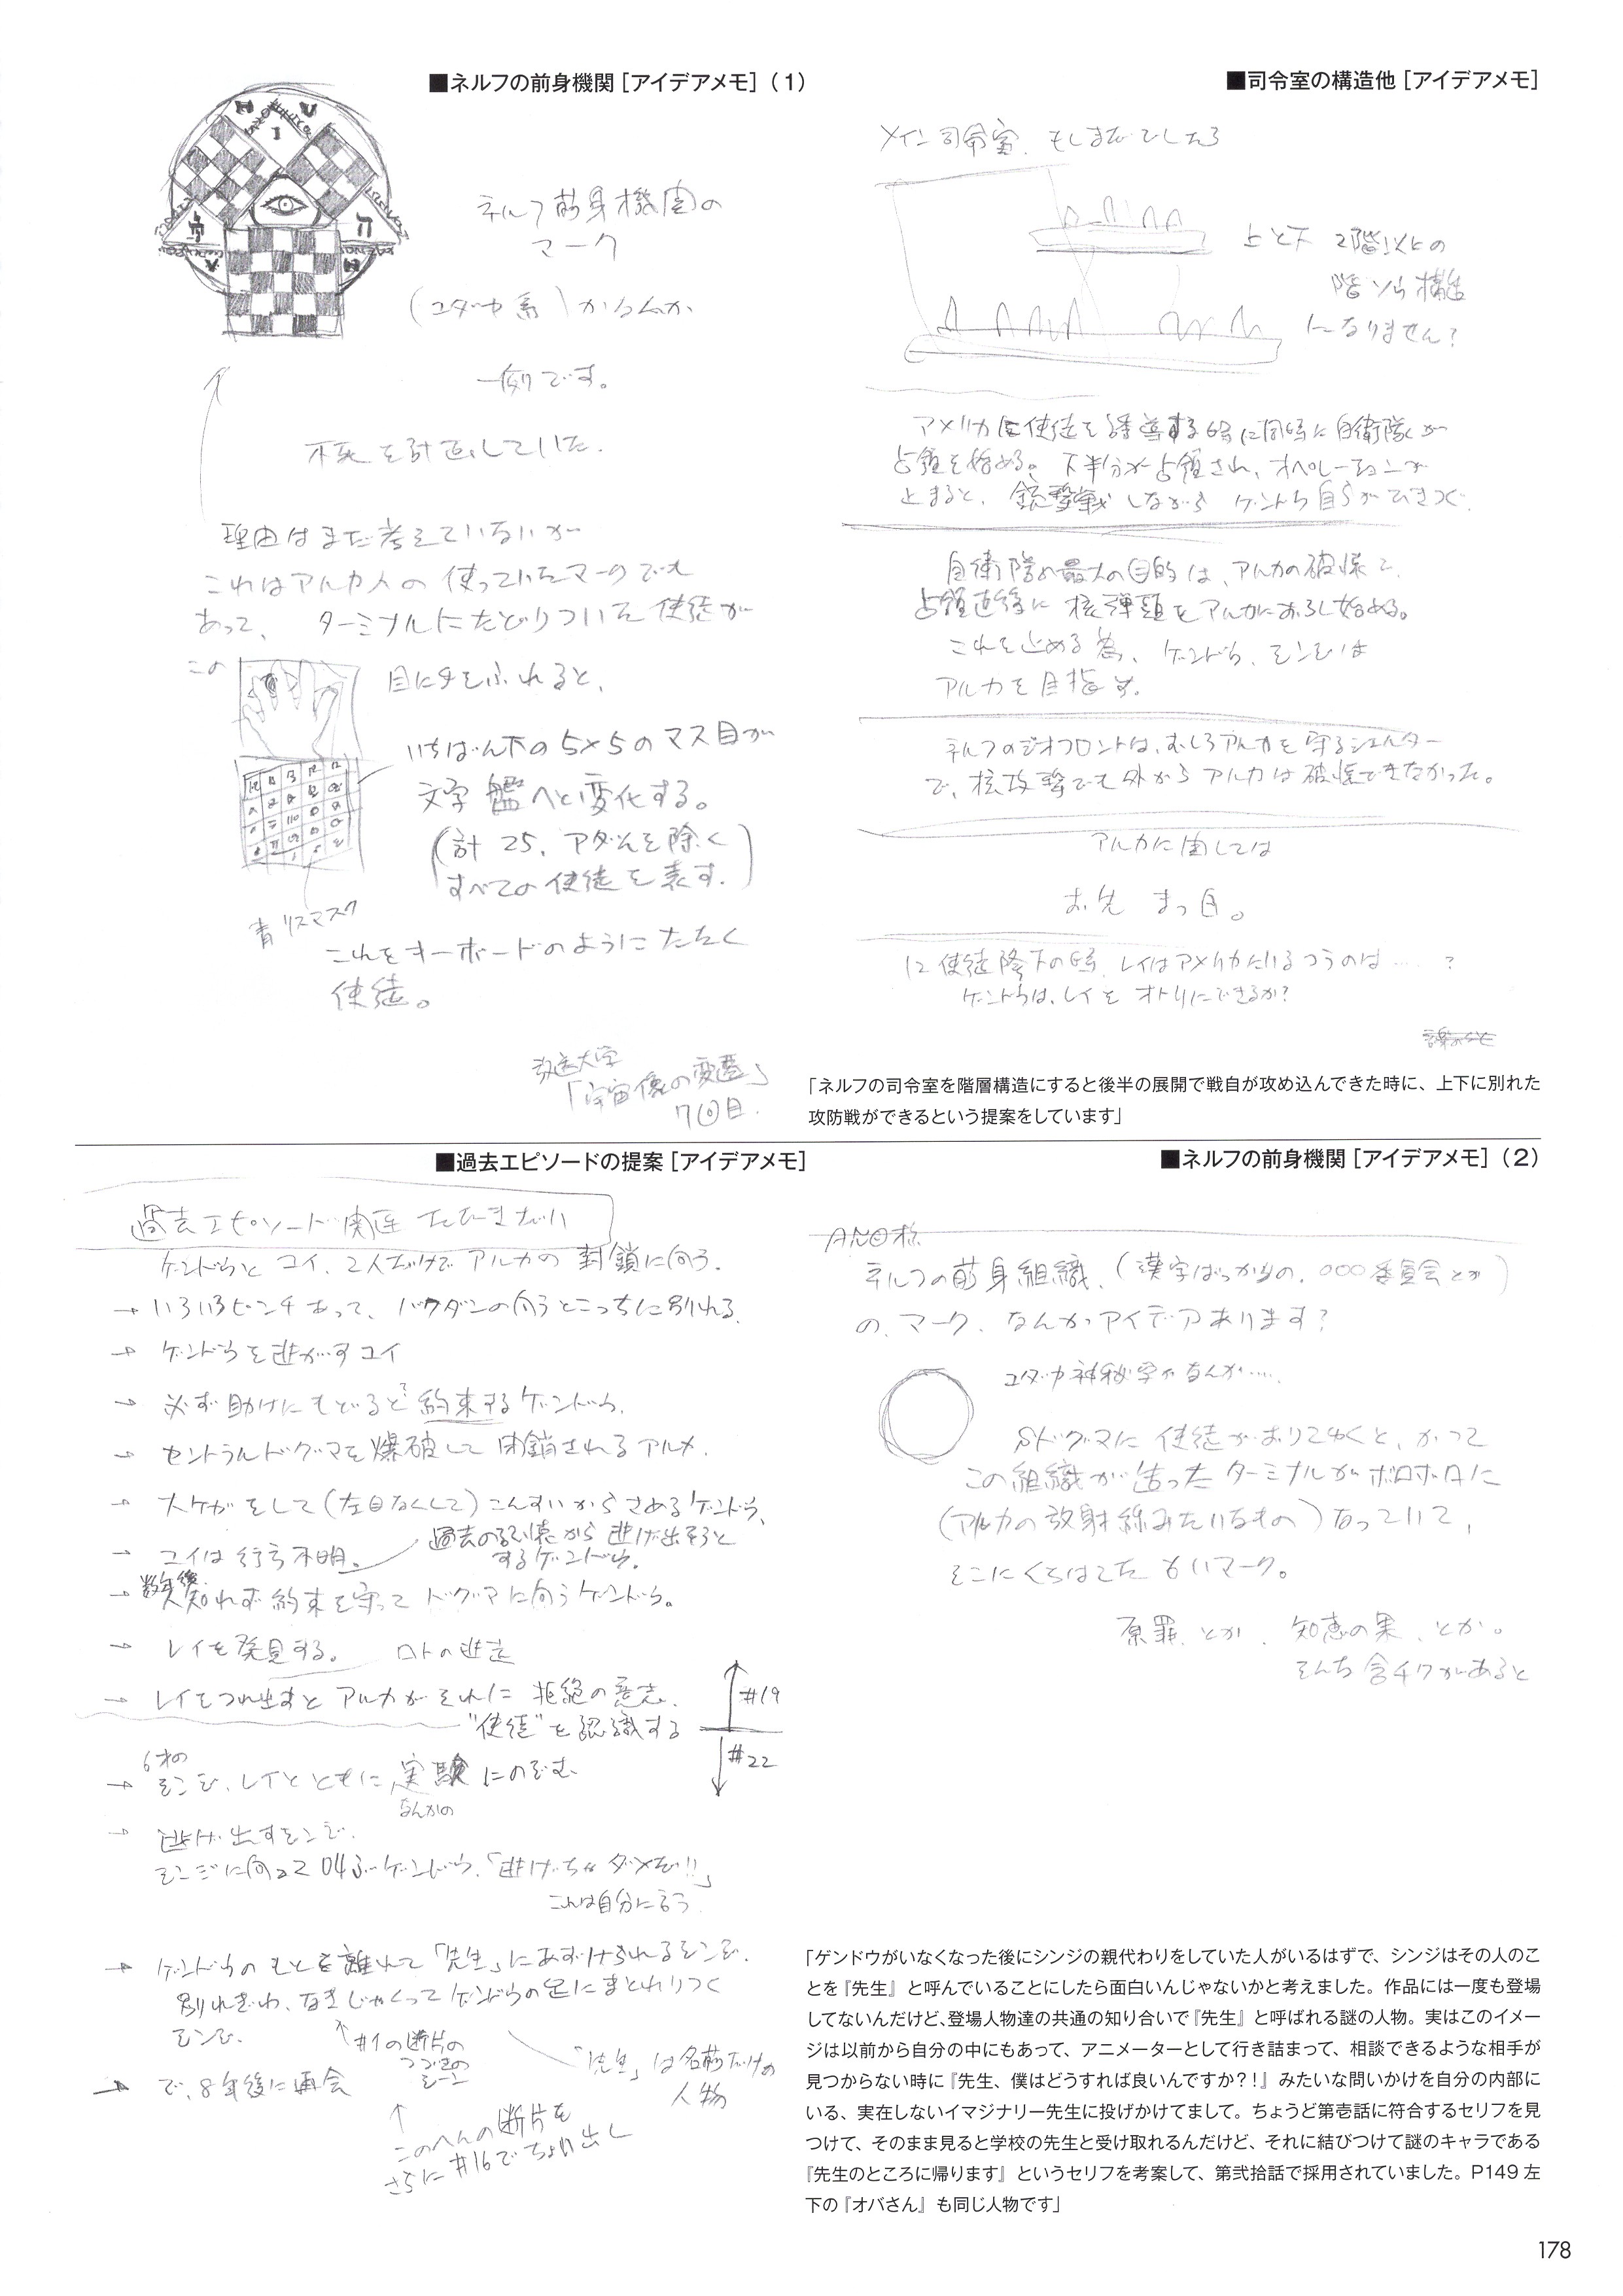 ■ネルフの前身機関［アイデアメモ］（1）
ネルフ前身機関の
マーク
(ユダヤ系)かなんか
一例です。
理由はまだ考えていないが
これはアルカ人の使っていたマークでも
あって、ターミナルにたどりついた使徒が
この
目に手をふれると、
いちばん下の5×5のマス目が
文字盤へと変化する。
(計25、アダムを除く
すべての使徒を表す。)
これをキーボードのようにたたく
使徒。
放送大学
「宇宙像の変遷」
7回目.
■司令室の構造他［アイデアメモ］
メイン司令室、もしまだでしたら
上と下 2階以上の
階そう構造
になりません?
アメリカに使徒を誘導する時に同時に自衛隊が
占領を始める。下半分が占領され、オペレーションが
止まると、銃撃戦しながら ゲンドウ自らがひきつぐ
自衛隊の最大の目的は、アルカの破壊で、
占領直後に核弾頭をアルカにおろし始める。
これを止める為、ゲンドウ、シンジは
アルカを目指す。
ネルフのジオフロントは、むしろアルカを守るシェルター
で、核攻撃でも外からアルカは破壊できなかった。
アルカに関しては
お先 まっ白。
12使徒降下の時、レイはアメリカにいるつうのは……?
ゲンドウは、レイを オトリにできるか?
「ネルフの司令室を階層構造にすると後半の展開で戦自が攻め込んできた時に、上下に別れた
攻防戦ができるという提案をしています」
■過去エピソードの提案［アイデアメモ］
過去エピソード関連 たたきだい
ゲンドウと ユイ、2人だけで アルカの 封鎖に向う.
→ いろいろピンチあって、バクダンの向うとこっちに別れる.
→ ゲンドウを逃がすユイ
→ 必ず助けにもどると約束するゲンドウ.
→ セントラルドグマを爆破して閉鎖されるアルカ.
→ 大ケガをして(左目なくして)こんすいからさめるゲンドウ、
→ ユイは行方不明。
過去の記憶から逃げ出そうと
するゲンドウ.
→ 数年後人知れず約束を守ってドグマに向うゲンドウ。
→ レイを発見する。
→ レイをつれ出すとアルカがそれに拒絶の意志.
"使徒"を認識する
#19
#22
→ 6才のシンジ、レイとともに実験にのぞむ
なんかの
→ 逃げ出すシンジ.
シンジに向って叫ぶゲンドウ.「逃げちゃダメだ!!」
これは自分に言う
→ ゲンドウのもとを離れて「先生」にあずけられるシンジ.
別れぎわ、なきじゃくってゲンドウの足にまとわりつく
シンジ.
#1の断片の
つづきの
シーン
「先生」は名前だけの
人物
→ で、8年後に再会
このへんの断片を
さらに#16でちょい出し
■ネルフの前身機関［アイデアメモ］（2）
ネルフの前身組織、(漢字ばっかりの、○○○委員会とか)
の、マーク、なんかアイデアあります?
ユダヤ神秘学かなんか…..
ドグマに使徒がおりてゆくと、かつて
この組織が造ったターミナルがボロボロに
(アルカの放射線みたいなもの)なっていて、
そこにくちはてた 古いマーク。
原罪、とか、知恵の果、とか。
そんな含チクがあると
「ゲンドウがいなくなった後にシンジの親代わりをしていた人がいるはずで、シンジはその人のこ
とを『先生』と呼んでいることにしたら面白いんじゃないかと考えました。作品には一度も登場
してないんだけど、登場人物達の共通の知り合いで『先生』と呼ばれる謎の人物。実はこのイメー
ジは以前から自分の中にもあって、アニメーターとして行き詰まって、相談できるような相手が
見つからない時に『先生、僕はどうすれば良いんですか？！』みたいな問いかけを自分の内部に
いる、実在しないイマジナリー先生に投げかけてまして。ちょうど第壱話に符合するセリフを見
つけて、そのまま見ると学校の先生と受け取れるんだけど、それに結びつけて謎のキャラである
『先生のところに帰ります』というセリフを考案して、第弐拾話で採用されていました。P149左
下の『オバさん』も同じ人物です」
178